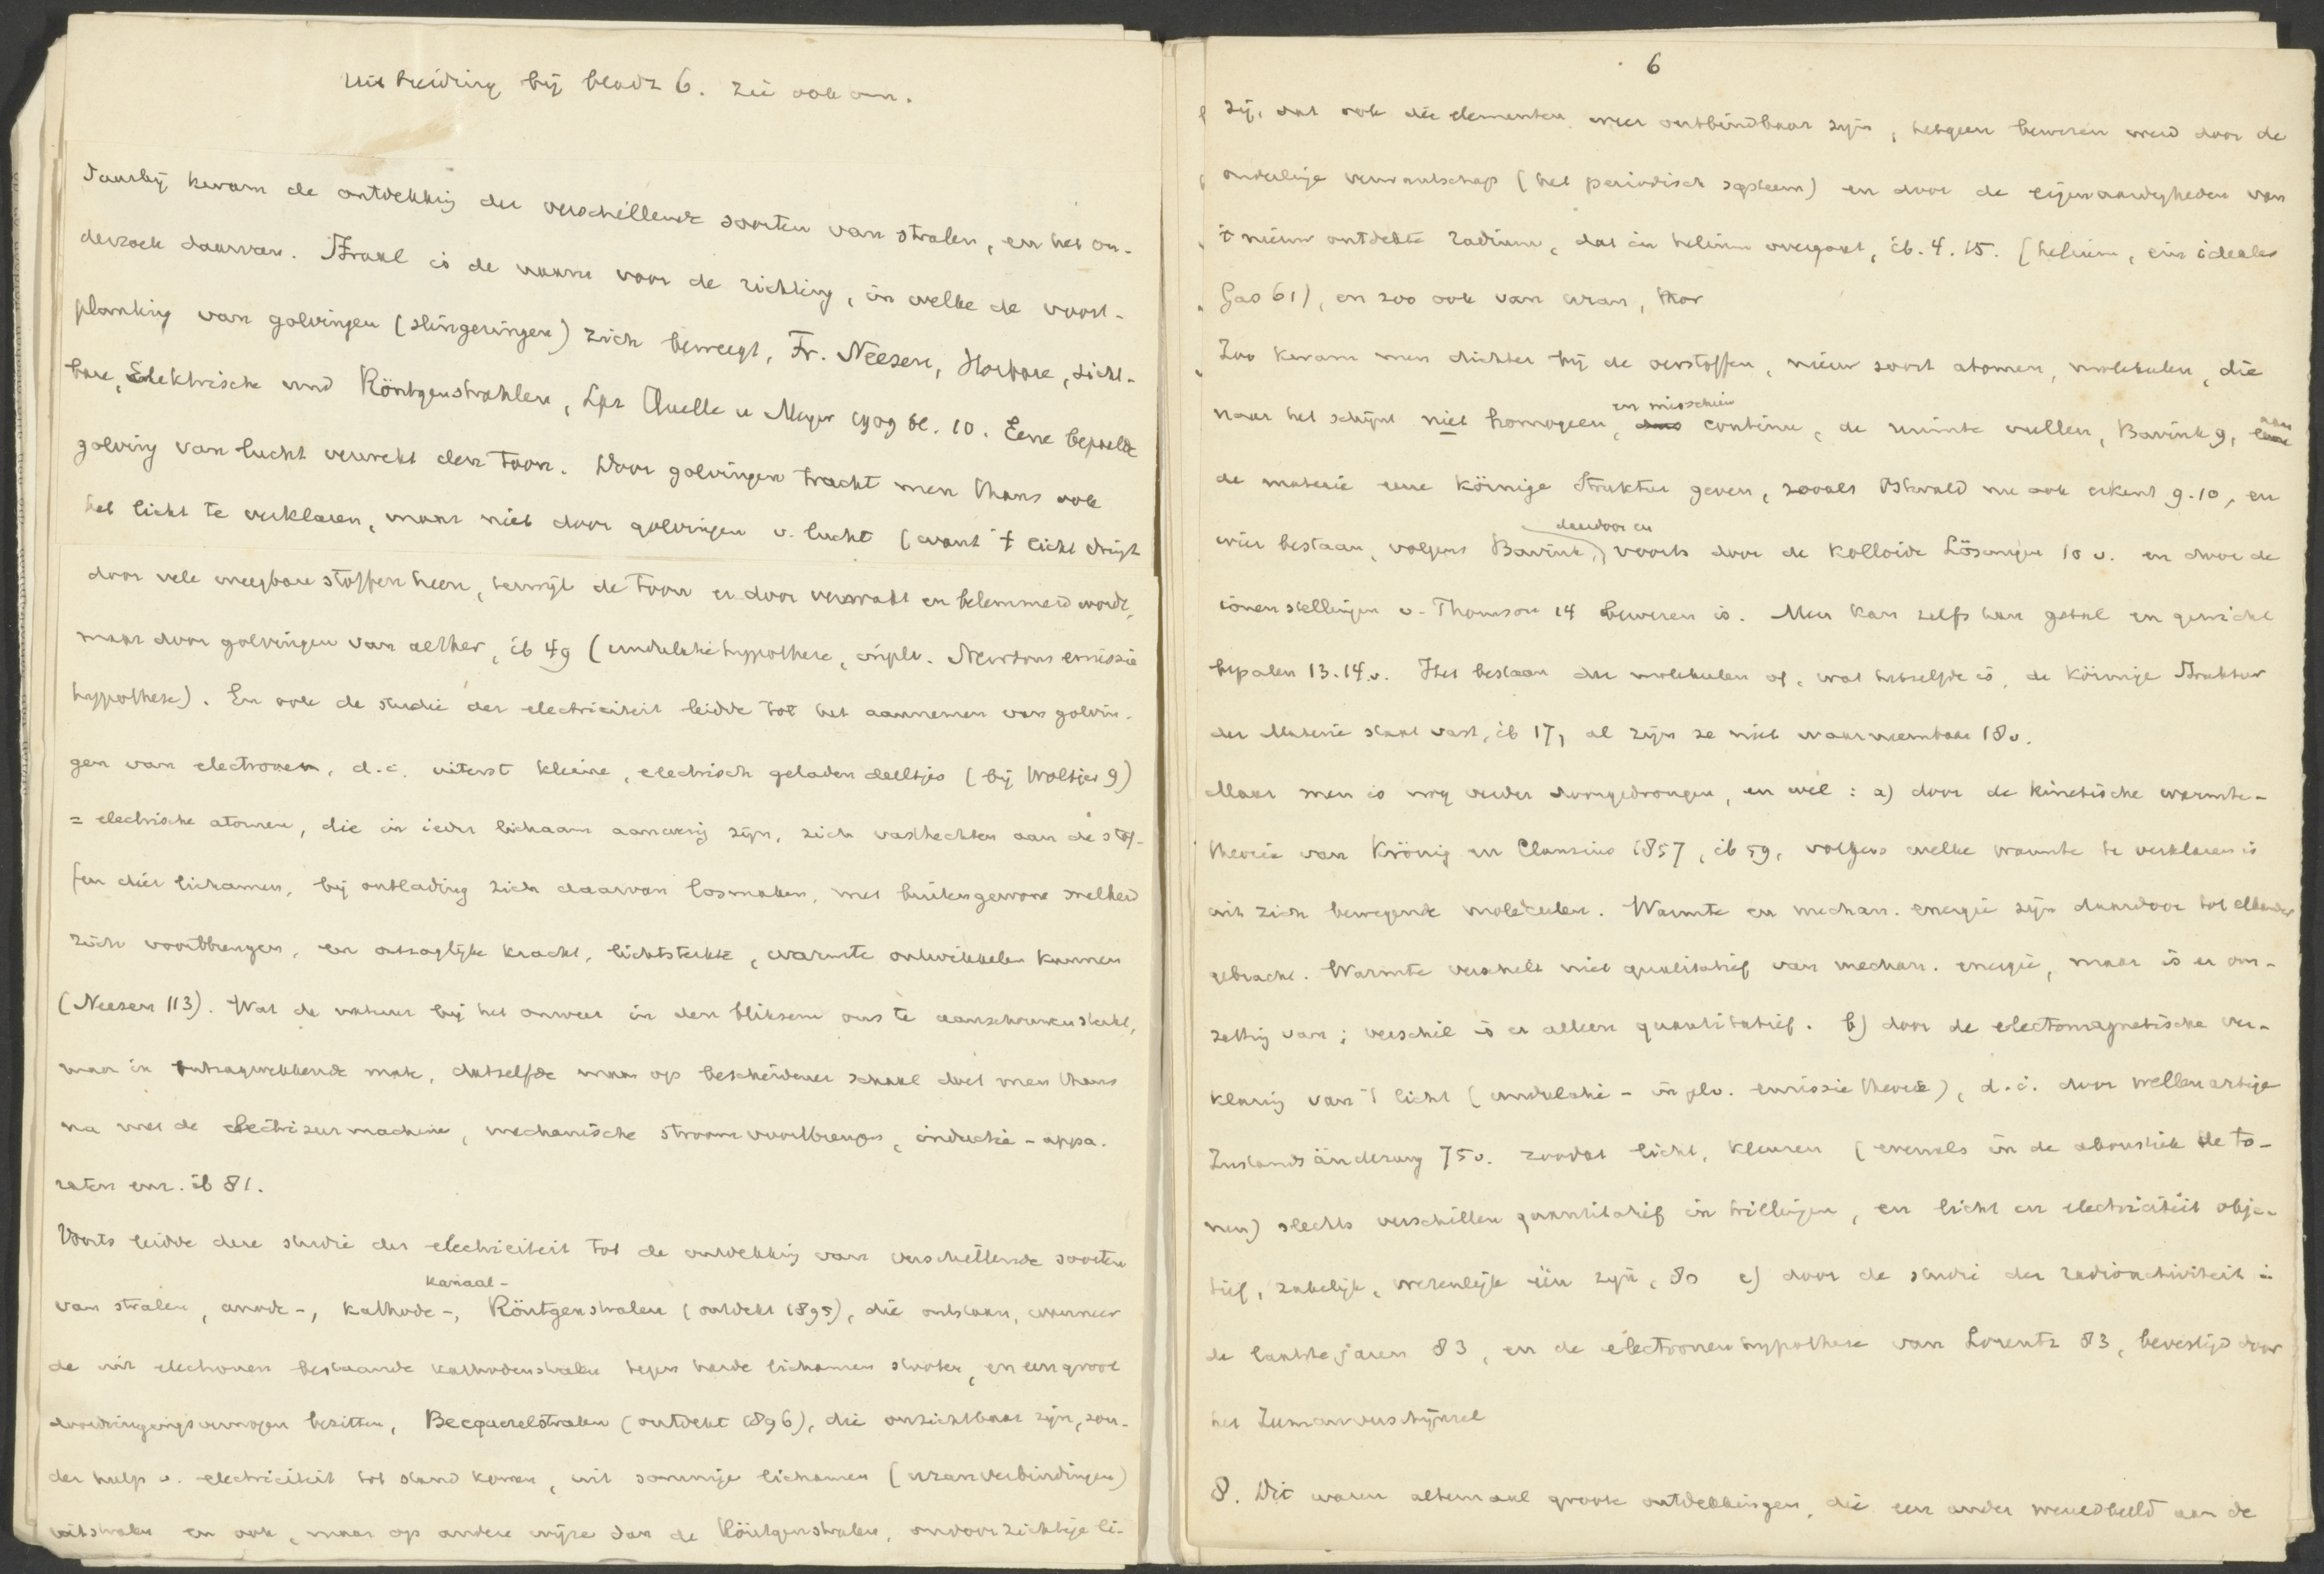 Uitbreiding bij bladz 6. Zie ook om.
Daarbij kwam de ontdekking der verschillende soorten van stralen, en het on-
derzoek daarvan. Straal is de naam voor de richting, in welke de voort-
planting van golvingen (slingeringen) zich beweegt, Fr. Neesen, Horbare, Licht-
bare, Elektrische und Röntgenstrahlen, Lpz Quelle u Meyer 1909 bl. 10. Eene bepaalde
golving van lucht verwekt den toon. Door golvingen tracht men thans ook
het licht te verklaren, maar niet door golvingen v. lucht (want 't licht dringt
door vele weegbare stoffen heen, terwijl de toon er door verzwakt en belemmerd wordt,
maar door golvingen van aether, ib 49 (undulatiehypothese, in plv. Newtons emissie
hypothese). En ook de studie der electriciteit leidde tot het aannemen van golvin-
gen van electronen, d.i. uiterst kleine, electrisch geladen deeltjes (bij Woltjer 9)
= electrische atomen, die in ieder lichaam aanwezig zijn, zich vasthechten aan de stof-
fen dier lichamen, bij ontlading zich daarvan losmaken, met buitengewone snelheid
zich voortbrengen, en ontzaglijke kracht, lichtsterkte, warmte ontwikkelen kunnen
(Neesen 113). Wat de natuur bij het onweer in den bliksem ons te aanschouwen stelt,
maar in ontzagwekkende mate, datzelfde maar op bescheidener schaal doet men thans
na met de electriseermachine, mechanische stroomvoortbrengers, inductie-appa-
raten enz. ib 81.
Voorts leidde deze studie der electriciteit tot de ontdekking van verschillende soorten
kanaal-
van stralen, anode-, kathode-, Röntgenstralen (ontdekt 1895), die ontstaan, wanneer
de uit electronen bestaande kathodenstralen tegen harde lichamen stooten, en een groot
doordringingsvermogen bezitten, Becquerelstralen (ontdekt 1896), die onzichtbaar zijn, zon-
der hulp v. electriciteit tot stand komen, uit sommige lichamen (uranverbindingen)
uitstralen en ook, maar op andere wijze dan de Röntgenstralen, ondoorzichtige li-
6
zij, dat ook die elementen weer ontbindbaar zijn, hetgeen bewezen werd door de
onderlinge verwantschap (het periodisch systeem) en door de eigenaardigheden van
't nieuw ontdekte radium, dat in helium overgaat, ib. 4. 15. (helium, ein ideales
Gas 61), en zoo ook van uran, thor
Zoo kwam men dichter bij de oerstoffen, nieuw soort atomen, molekulen, die
en misschien
naar het schijnt niet homogeen, continu, de ruimte vullen, Bavink 9, maar
de materie eene körnige Struktur geven, zooals Ostwald nu ook erkent 9.10, en
daardoor en
wier bestaan, volgens Bavink, voorts door de kolloide Lösungen 10 v. en door de
ionenstellingen v. Thomson 14 bewezen is. Men kan zelfs hun getal en gewicht
bepalen 13.14 v. Het bestaan der molekulen of, wat hetzelfde is, de körnige Struktur
der Materie staat vast, ib 17, al zijn ze niet waarneembaar 18 v.
Maar men is nog verder doorgedrongen, en wel: a) door de kinetische warmte-
theorie van Krönig en Clausius 1857, ib 59, volgens welke warmte te verklaren is
uit zich bewegende moleculen. Warmte en mechan. energie zijn daardoor tot elkander
gebracht. Warmte verschilt niet qualitatief van mechan. energie, maar is er om-
zetting van; verschil is er alleen quantitatief. b) door de electomagnetische ver-
klaring van 't licht (undulatie- in plv. emissie theorie), d.i. door wellenartige
Zustandsänderung 75 v. zoodat licht, kleuren (evenals in de akoustiek de to-
nen) slechts verschillen quantitatief in trillingen, en licht en electriciteit objec-
tief, zakelijk, wezenlijk één zijn, 80 c) door de studie der radioactiviteit in
de laatste jaren 83, en de electronenhypothese van Lorentz 83, bevestigd door
het Zeemanverschijnsel
8. Dit waren altemaal groote ontdekkingen, die een ander wereldbeeld aan de